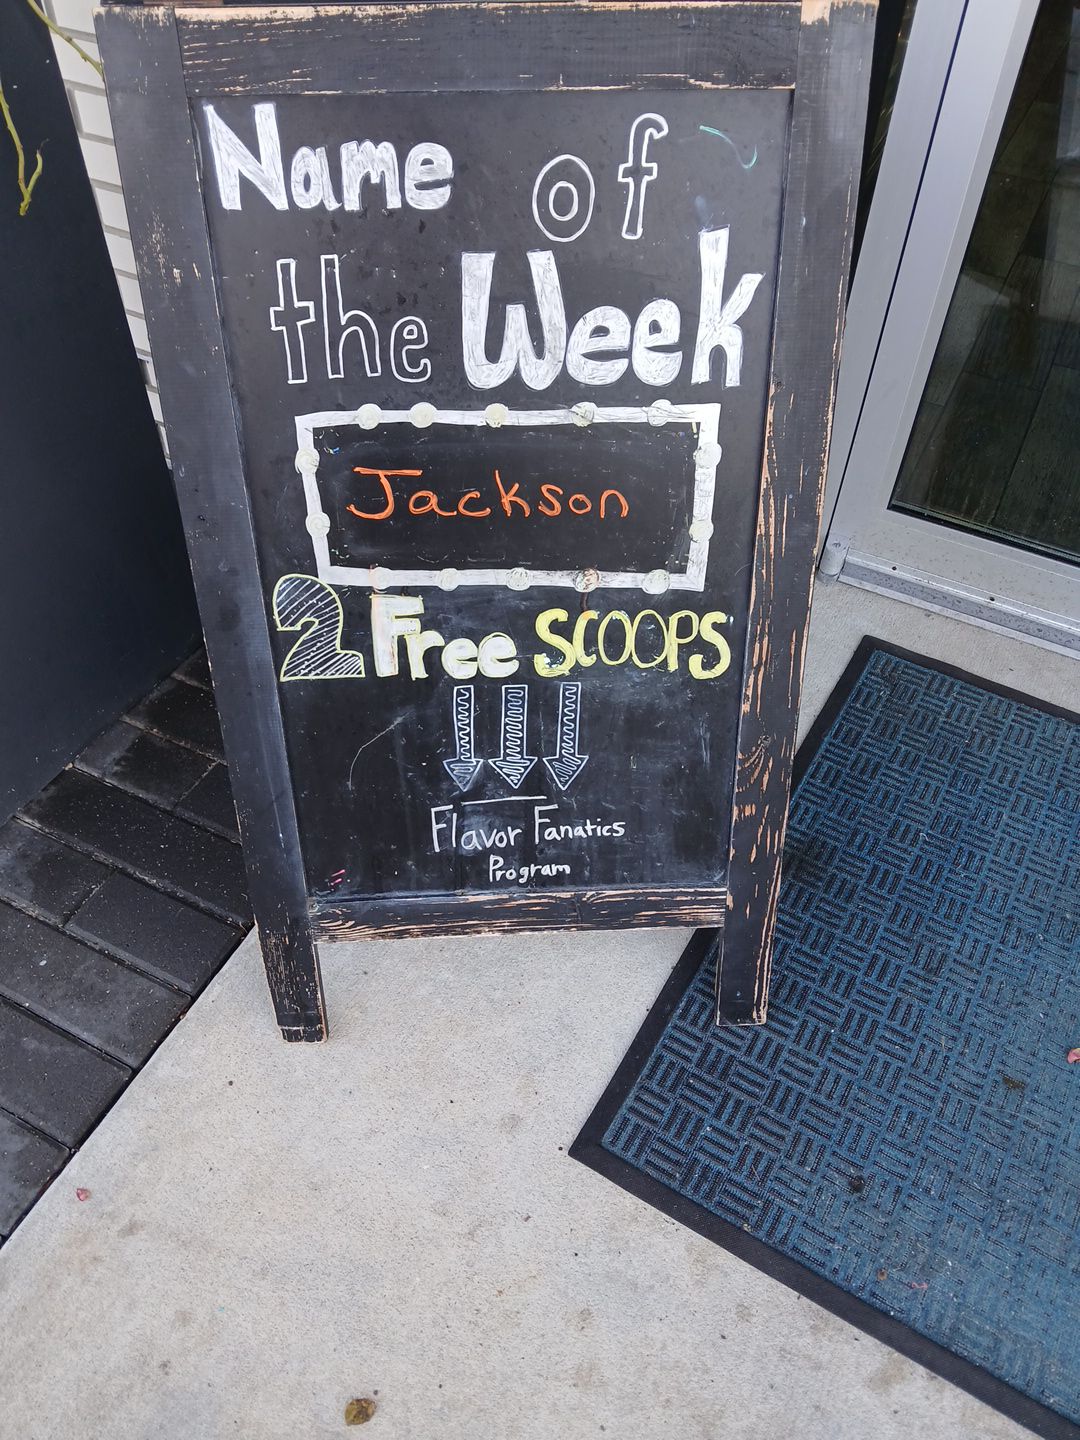 Name of
the Week
Jackson
2 Free SCOOPS
Flavor Fanatics
Program